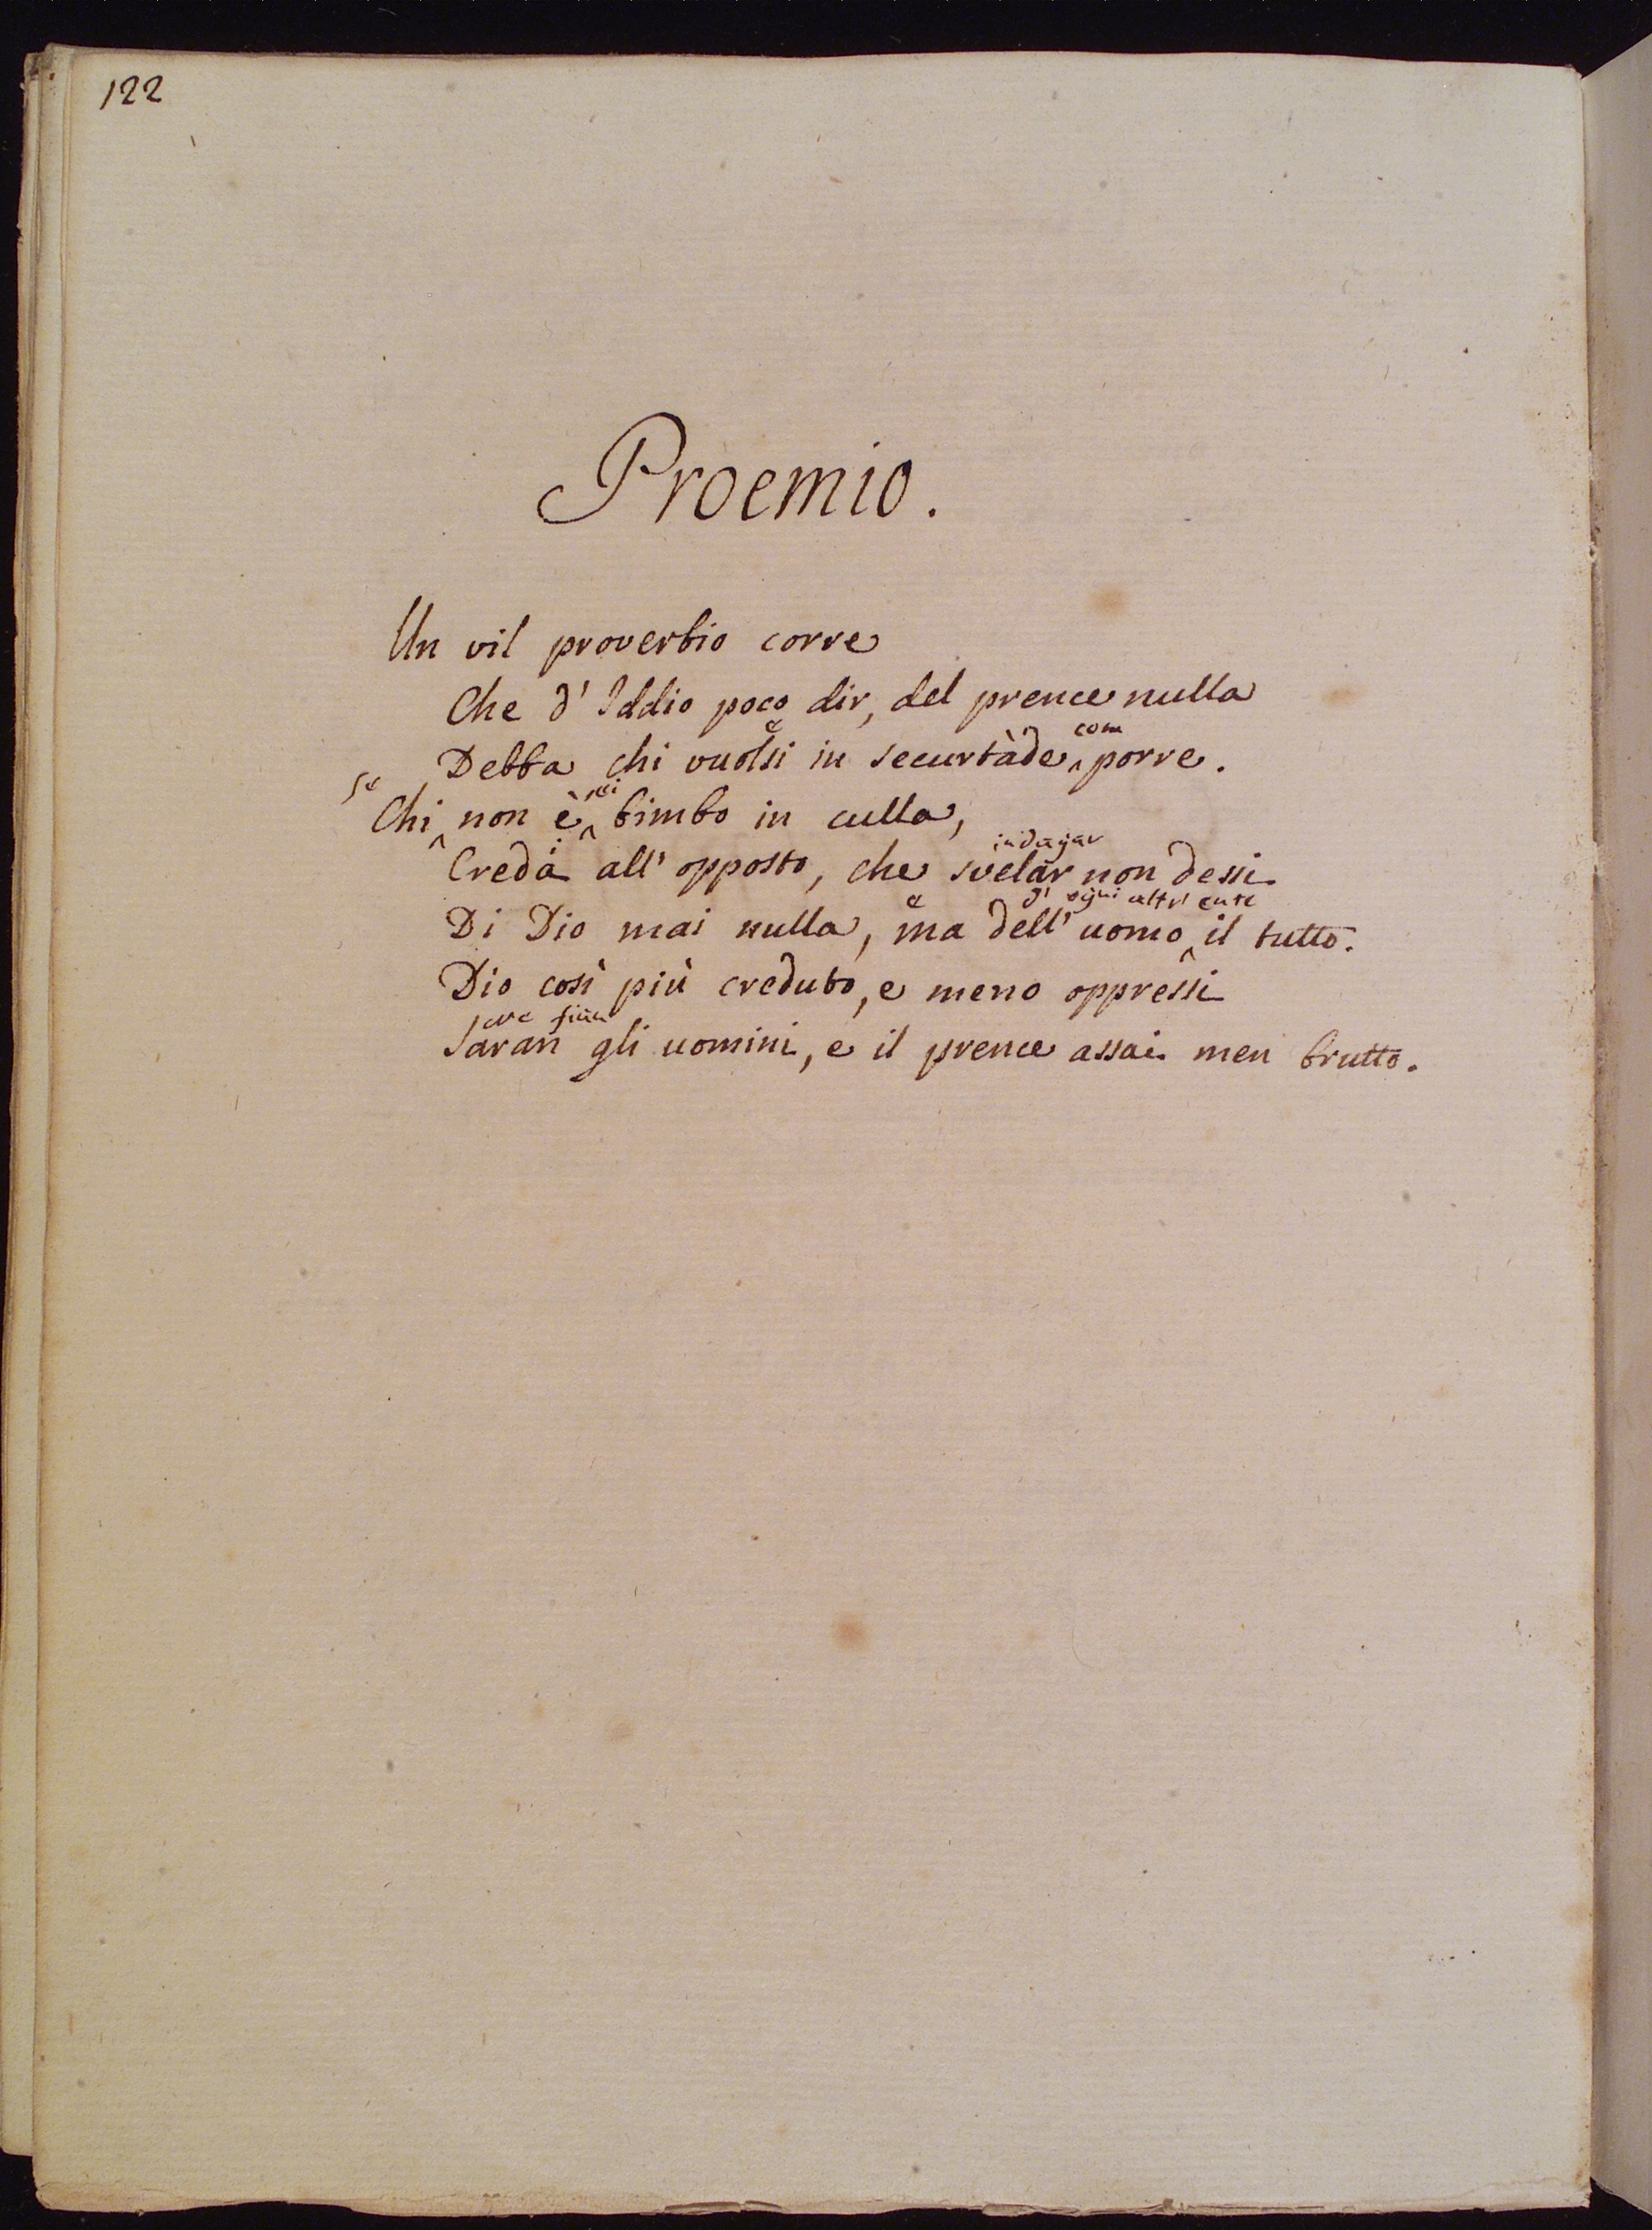 122
Proemio.
Un vil proverbio corre
Che d'Iddio poco dir, del prence nulla
e com
Debba chi vuolsi in securtàde porre.
se
Chi non è bimbo in culla,
indagar
Creda all'opposto, che svelar non dessi
e d'ogni altr'ente
Di Dio mai nulla, ma dell'uomo il tutto.
Dio così più creduto, e meno oppressi
fien
Saran gli uomini, e il prence assai men brutto.